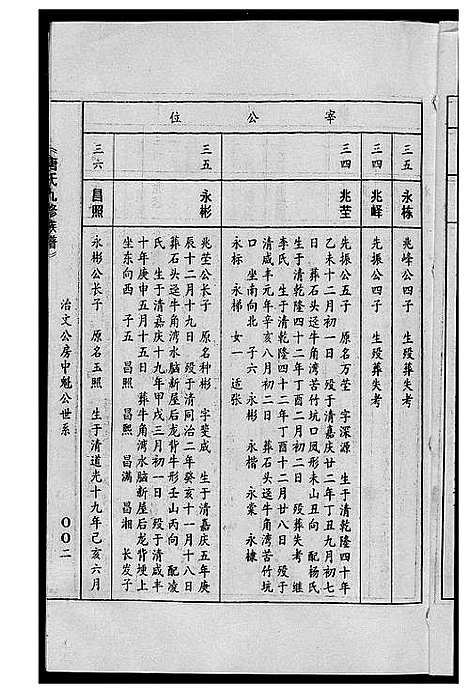 宰公位
三五
永栋
兆峰公四子 生殁葬失考
三四
兆峄
先振公四子 生殁葬失考
三四
兆莹
先振公五子 原名万莹 字深源 生于清乾隆四十年
乙未十二月初一日 殁于清嘉庆廿二年丁丑九月初七
日 葬石头迳牛角湾苦竹坑口凤形未山丑向 配杨氏
生于清乾隆四十二年丁酉二月初二日 殁葬失考 继
李氏 生于清乾隆四十二年丁酉十二月廿八日 殁于
清咸丰元年辛亥八月初二日 葬石头迳牛角湾苦竹坑
口 坐南向北 子六 永彬 永楷 永棠 永棣
永标 永梯 女一 适张
三五
永彬
兆莹公长子 原名种彬 字斐成 生于清嘉庆五年庚
辰十二月十九日 殁于清同治二年癸亥十一月十八日
葬石头迳牛角湾水脑新屋后龙背牛形壬山丙向 配凌
氏 生于清嘉庆十九年甲戌三月初一日 殁于清咸丰
十年庚申五月十五日 葬牛角湾水脑新屋后龙背埂上
坐东向西 子五 昌照 昌熙 昌满 昌湘 长发子
三六
昌照
永彬公长子 原名玉照 生于清道光十九年己亥六月
氏九修族谱
治文公房中魁公世系
〇〇二